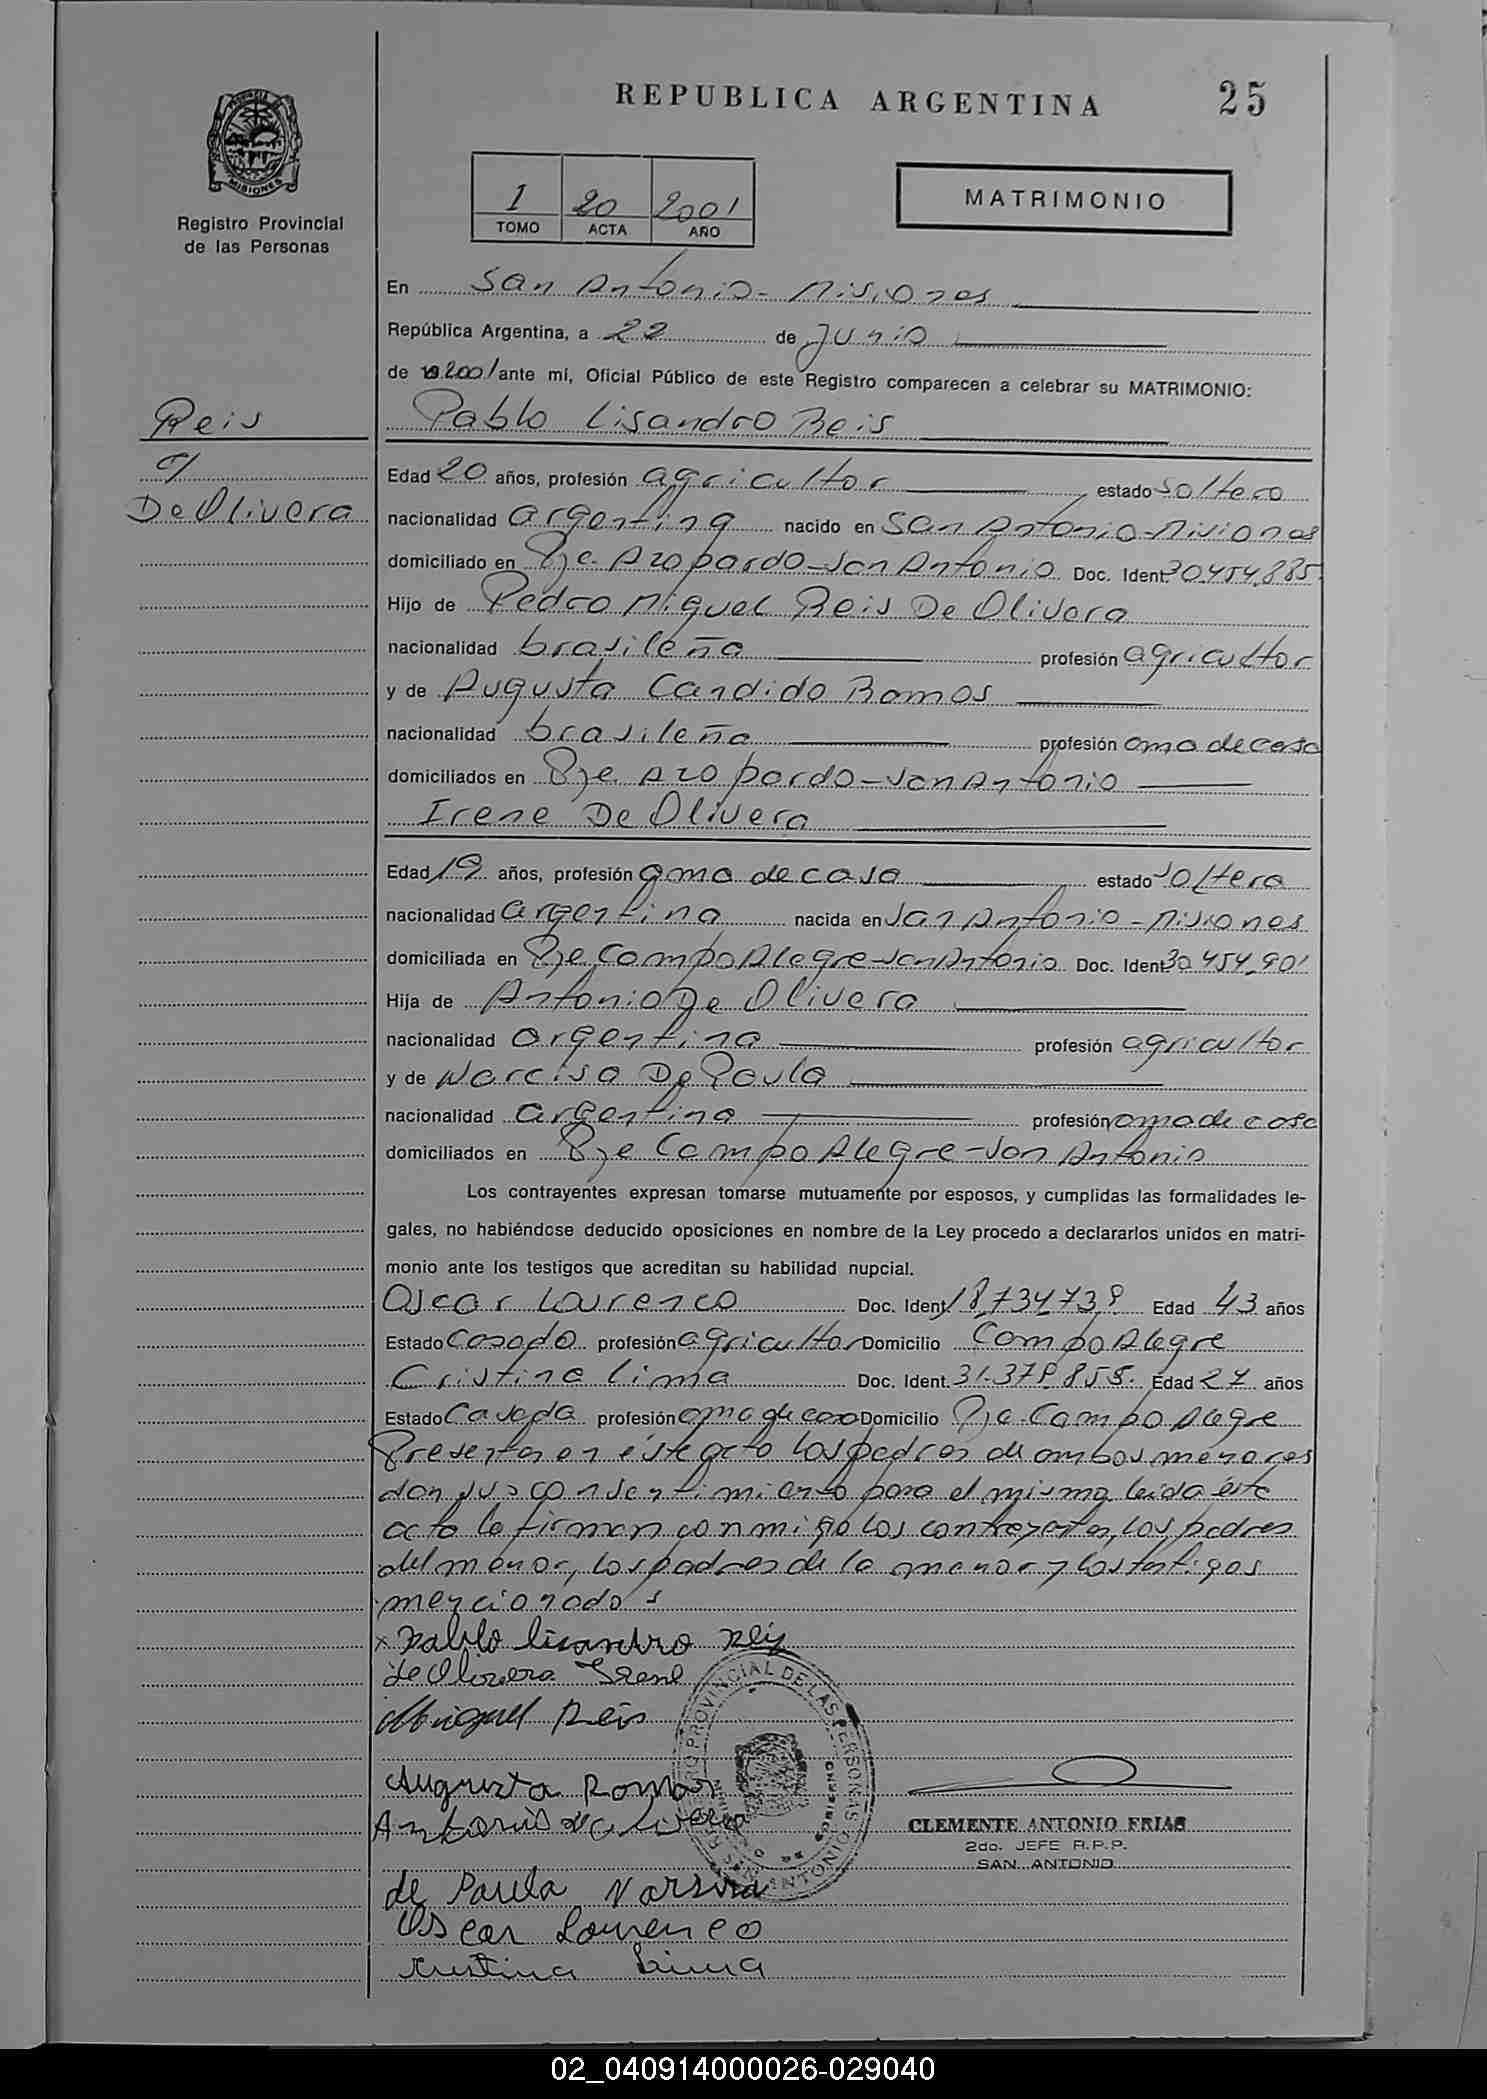 REPUBLICA ARGENTINA 25
PROVINCIA DE MISIONES
Registro Provincial
de las Personas
1 20 2001
TOMO ACTA AÑO
MATRIMONIO
En San Antonio - Misiones
República Argentina, a 22 de Junio
de 2001 ante mí, Oficial Público de este Registro comparecen a celebrar su MATRIMONIO:
Reis
c/
De Olivera
Pablo Lisandro Reis
Edad 20 años, profesión agricultor estado soltero
nacionalidad argentina nacido en San Antonio-Misiones
domiciliado en Pje. Azopardo-San Antonio Doc. Ident. 30.454.885
Hijo de Pedro Miguel Reis De Olivera
nacionalidad brasileña profesión agricultor
y de Augusta Candido Ramos
nacionalidad brasileña profesión ama de casa
domiciliados en Pje. Azopardo-San Antonio
Irene De Olivera
Edad 19 años, profesión ama de casa estado soltera
nacionalidad argentina nacida en San Antonio-Misiones
domiciliada en Pje. Campo Alegre-San Antonio Doc. Ident. 30.454.901
Hija de Antonio De Olivera
nacionalidad argentina profesión agricultor
y de Narcisa De Paula
nacionalidad argentina profesión ama de casa
domiciliados en Pje Campo Alegre-San Antonio
Los contrayentes expresan tomarse mutuamente por esposos, y cumplidas las formalidades le-
gales, no habiéndose deducido oposiciones en nombre de la Ley procedo a declararlos unidos en matri-
monio ante los testigos que acreditan su habilidad nupcial.
Oscar Lourenco Doc. Ident. 18.734.739 Edad 43 años
Estado Casado profesión agricultor Domicilio Campo Alegre
Cristina Lima Doc. Ident. 31.379.855. Edad 27 años
Estado Casada profesión ama de casa Domicilio Pje. Campo Alegre
Presentes en éste acto los padres de ambos menores
dan sus consentimiento para el mismo leida ésta
acta la firman conmigo los contrayentes, los padres
del menor, los padres de la menor y los testigos
mencionados
x Pablo Lisandro Reis
de Olivera Irene
Miguel Reis
Augusta Ramos
Antonio de Olivera
de Paula Narsisa
Oscar Lourenco
Cristina Lima
REGISTRO PROVINCIAL DE LAS PERSONAS
SAN ANTONIO
CLEMENTE ANTONIO FRIAS
2do. JEFE R.P.P.
SAN ANTONIO
02_040914000026-029040